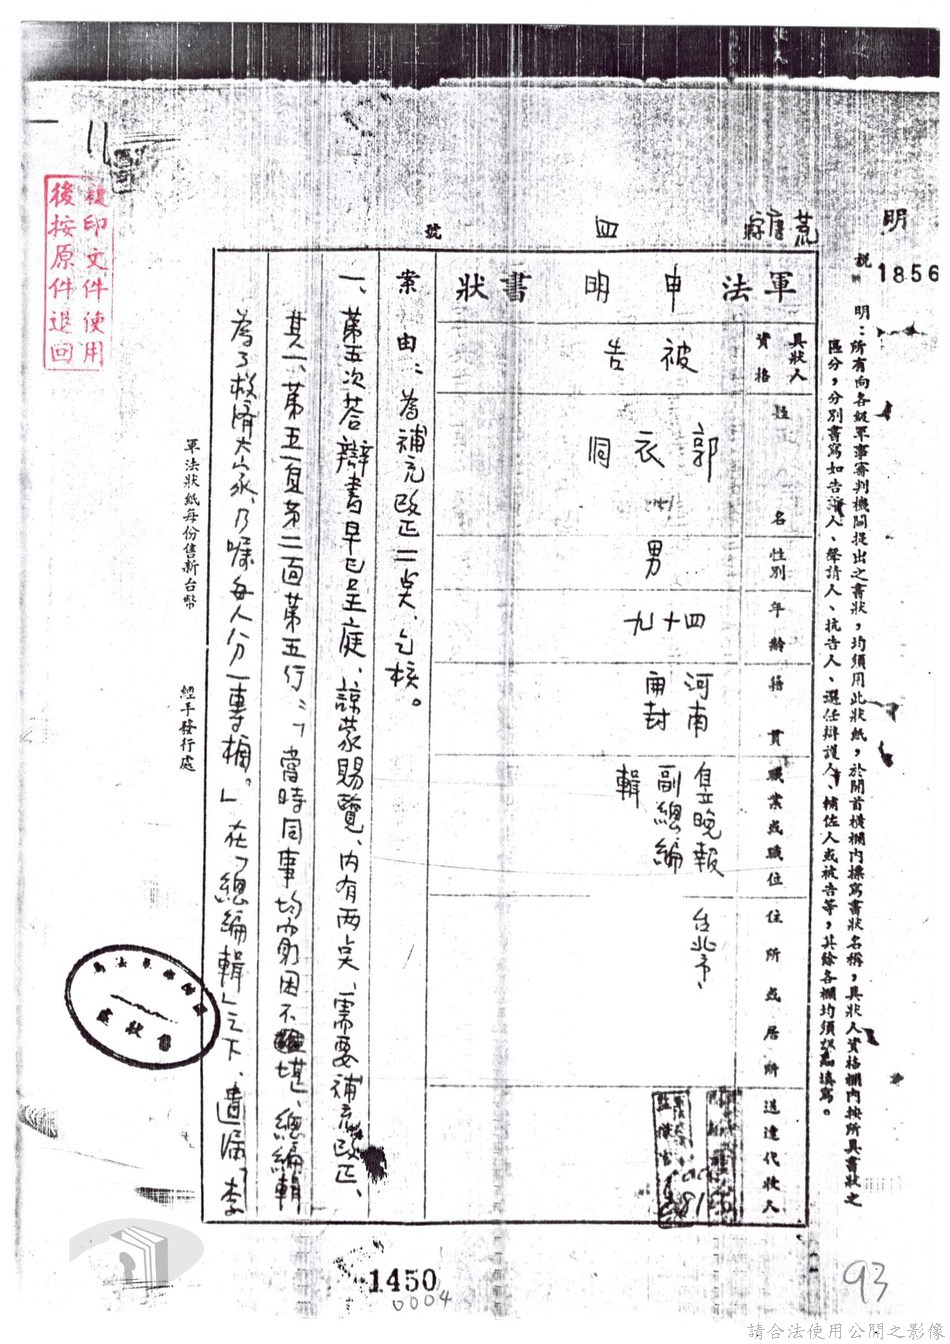 明
1856
說明：所有向各級軍事審判機關提出之書狀，均須用此狀紙，於開首橫欄內撰寫書狀名稱，具狀人資格欄內按所具書狀之
區分，分別書寫如告訴人、聲請人、抗告人、選任辯護人、輔佐人或被告等，其餘各欄均須詳為填寫。
號
四
軍法申明書狀
具狀人資格
被告
姓名
郭衣洞
性別
男
年齡
四十九
籍貫
河南開封
職業或職位
自立晚報副總編輯
住所或居所
台北市
送達代收人
案由：為補充改正二点、乞核。
一、第五次答辯書早已呈庭、諒蒙賜覽、內有兩点、需要補充改正、
其一、第五一頁第二面第五行：「當時同事均窮困不堪、總編輯
為了救濟大家、乃囑每人分一專欄。」在「總編輯」之下、遺漏「李
軍法狀紙每份售新台幣
經手發行處
複印文件使用
後按原件退回
1450
0004
93
請合法使用公開之影像